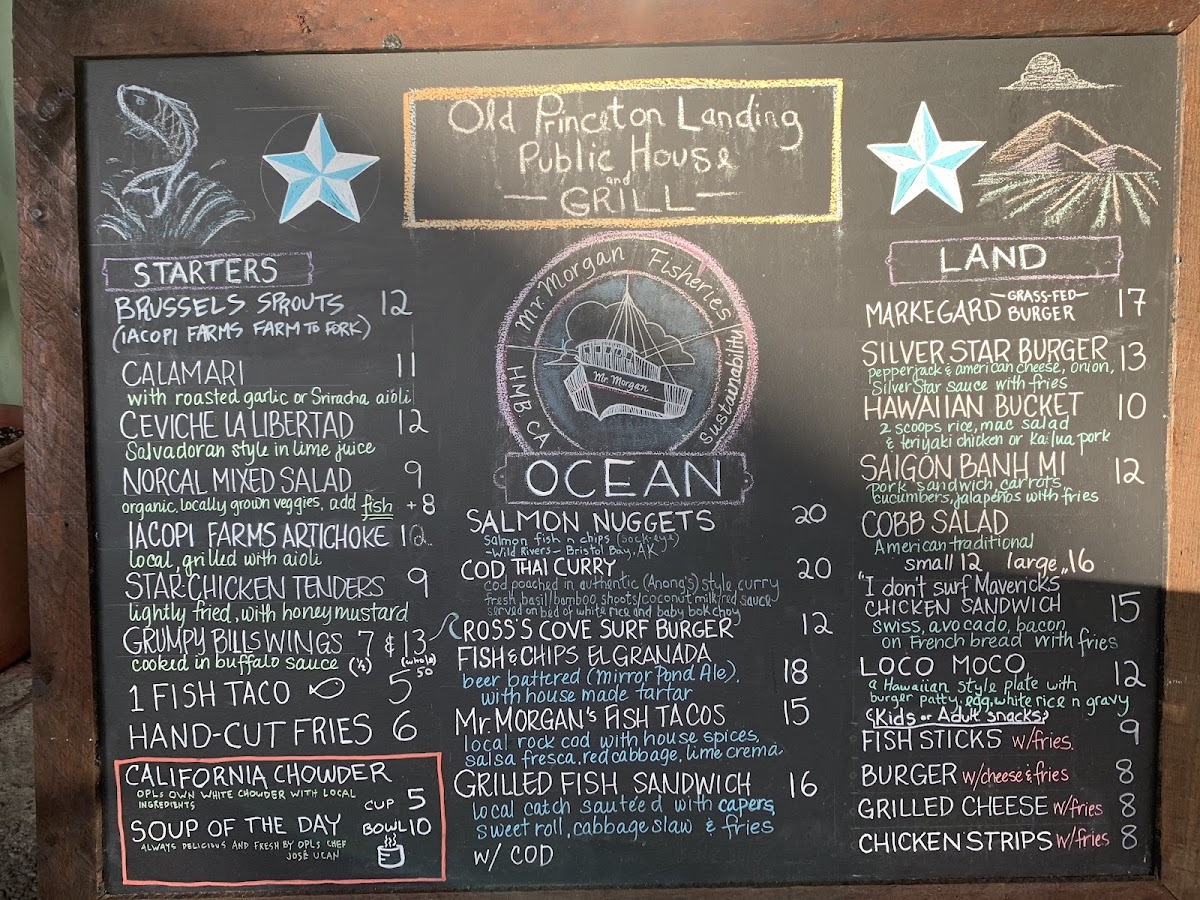 Old Princeton Landing
Public House
and
GRILL
STARTERS
BRUSSELS SPROUTS 12
(IACOPI FARMS FARM TO FORK)
CALAMARI 11
with roasted garlic or Sriracha aioli
CEVICHE LA LIBERTAD 12
Salvadoran style in lime juice
NORCAL MIXED SALAD 9
organic, locally grown veggies, add fish +8
IACOPI FARMS ARTICHOKE
local, grilled with aioli
STAR CHICKEN TENDERS 9
lightly fried, with honey mustard
GRUMPY BILLS WINGS 7 & 13
cooked in buffalo sauce (½) (whole)
50
1 FISH TACO 5
HAND-CUT FRIES 6
CALIFORNIA CHOWDER
OPLs OWN WHITE CHOWDER WITH LOCAL
INGREDIENTS
CUP 5
SOUP OF THE DAY BOWL 10
ALWAYS DELICIOUS AND FRESH BY OPLS CHEF
JOSÉ UCAN
Mr. Morgan Fisheries
HMB CA
Sustainability
Mr. Morgan
OCEAN
SALMON NUGGETS 20
Salmon fish n chips (sock-eye)
-Wild Rivers- Bristol Bay, AK
COD THAI CURRY 20
cod poached in authentic (Anong's) style curry
fresh basil/bamboo shoots/coconut milk/red sauce
served on bed of white rice and baby bok choy
ROSS'S COVE SURF BURGER 12
FISH & CHIPS EL GRANADA 18
beer battered (Mirror Pond Ale).
with house made tartar
Mr. MORGAN'S FISH TACOS 15
local rock cod with house spices,
salsa fresca, red cabbage, lime crema
GRILLED FISH SANDWICH 16
local catch sautéed with capers,
sweet roll, cabbage slaw & fries
w/ COD
LAND
MARKEGARD -GRASS-FED- BURGER 17
SILVER STAR BURGER 13
pepperjack & american cheese, onion,
Silver Star sauce with fries
HAWAIIAN BUCKET 10
2 scoops rice, mac salad
& teriyaki chicken or kalua pork
SAIGON BANH MI 12
pork sandwich, carrots,
cucumbers, jalapeños with fries
COBB SALAD
American traditional
small 12 large 16
"I don't surf Mavericks"
CHICKEN SANDWICH 15
swiss, avocado, bacon
on French bread with fries
LOCO MOCO 12
a Hawaiian style plate with
burger patty, egg, white rice n gravy
(Kids or Adult snacks)
FISH STICKS w/fries. 9
BURGER w/cheese & fries 8
GRILLED CHEESE w/fries 8
CHICKEN STRIPS w/fries 8